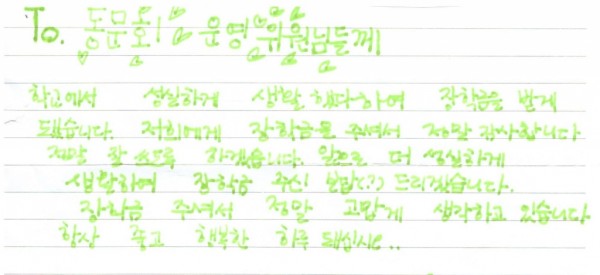 To. 동문회 운영 위원님들께
학교에서 성실하게 생활 했다하여 장학금을 받게
됐습니다. 저희에게 장학금을 주셔서 정말 감사합니다
정말 잘 쓰도록 하겠습니다. 앞으로 더 성실하게
생활하여 장학금 주신 보람(?) 드리겠습니다.
장학금 주셔서 정말 고맙게 생각하고 있습니다
항상 좋고 행복한 하루 돼십시오..